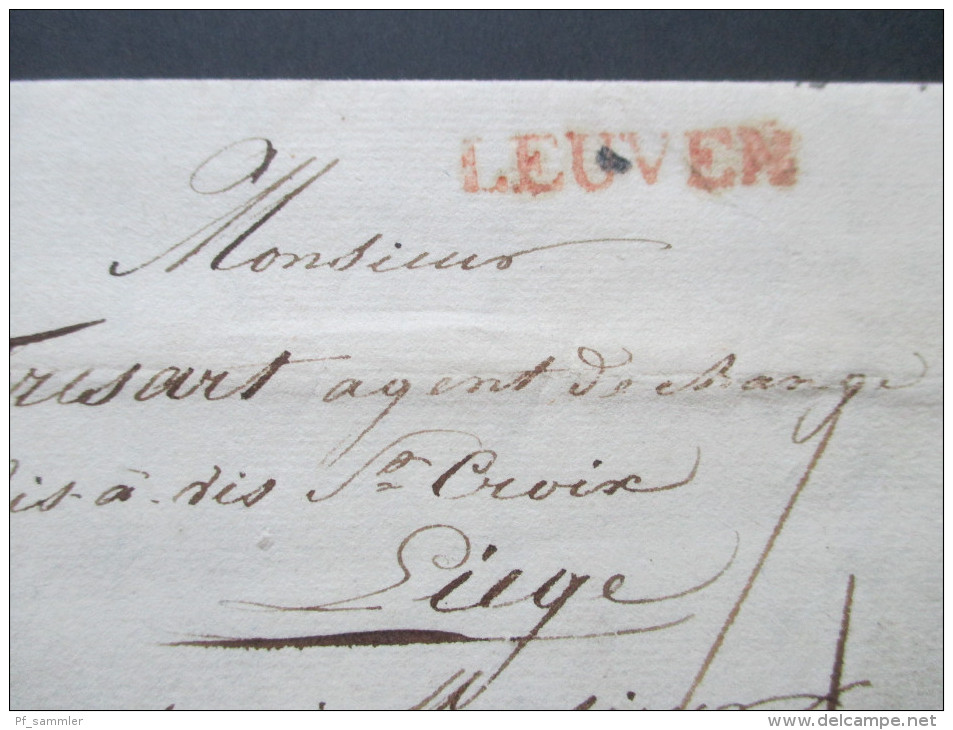 LEUVEN
Monsieur
Fresart agent de change
Vis-à-vis Ste Croix
Liege
Pf_sammler
www.delcampe.net